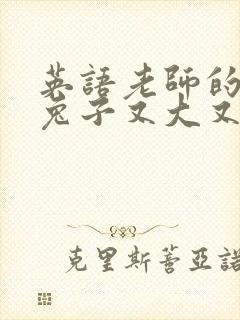 英語老師的
兔子又大又
克里斯蒈亞諾